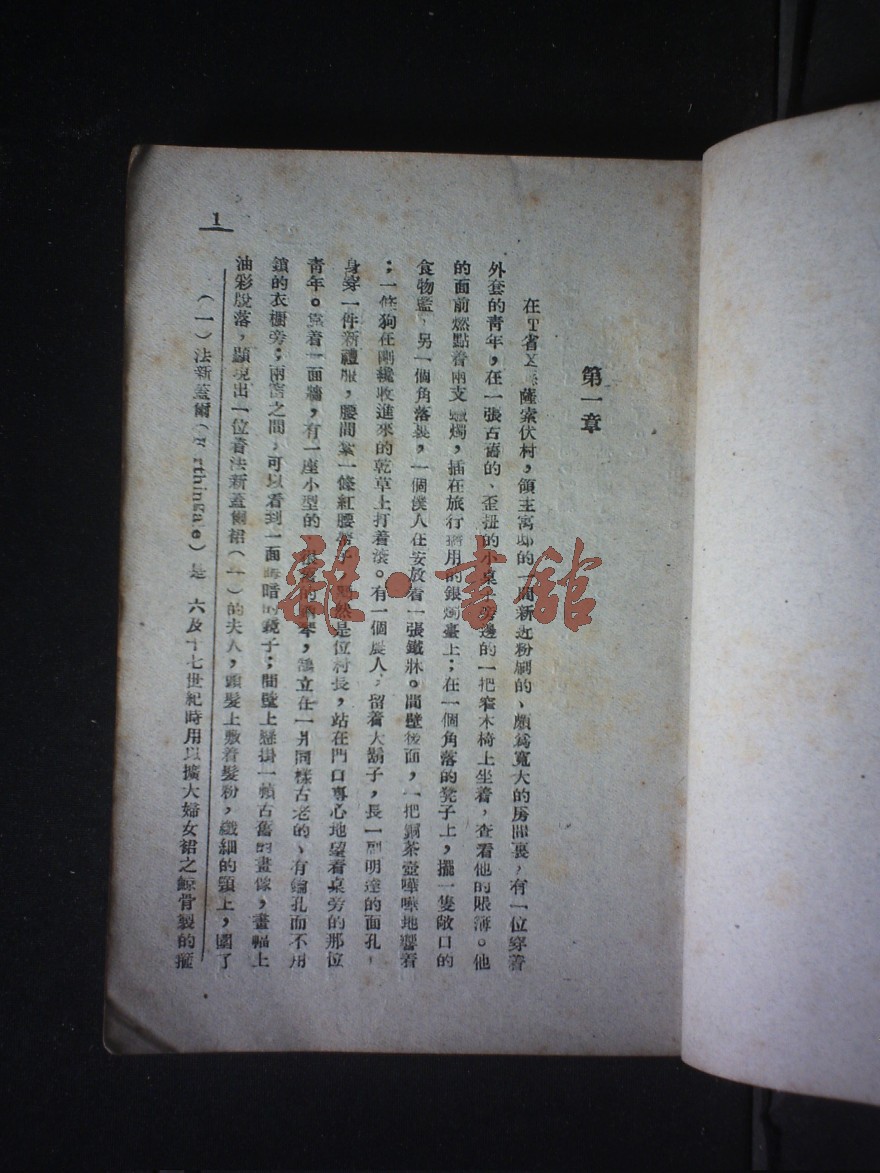 第一章
在T省X 薩索伏村，領主寓邸的一間新近粉刷的、頗爲寬大的房間裏，有一位穿着
外套的青年，在一張古舊的、歪扭的小桌子旁邊的一把窄木椅上坐着，查看他的賬簿。他
的面前燃點着兩支蠟燭，插在旅行 用的銀燭臺上；在一個角落的凳子上，擺一隻敞口的
食物籃，另一個角落裏，一個僕人在安放着一張鐵牀。間壁後面，一把銅茶壺嘩嘩地響着
；一條狗在剛纔收進來的乾草上打着滾。有一個農人，留着大鬍子，長一副明達的面孔，
身穿一件新禮服，腰間紮一條紅腰帶子，顯然是位村長，站在門口專心地望着桌旁的那位
青年。靠着一面牆，有一座小型的 很老的 琴，鵠立在一具同樣古老的、有鑰孔而不用
鎖的衣櫥旁；兩窗之間，可以看到一面 暗的鏡子；間壁上懸掛一幀古舊的畫像，畫幅上
油彩脫落，顯現出一位着法新蓋爾裙（一）的夫人，頭髮上敷着髮粉，纖細的頸上，圍了
（一）法新蓋爾（ rthingale）是 六及十七世紀時用以擴大婦女裙之鯨骨製的箍
1
雜·書館